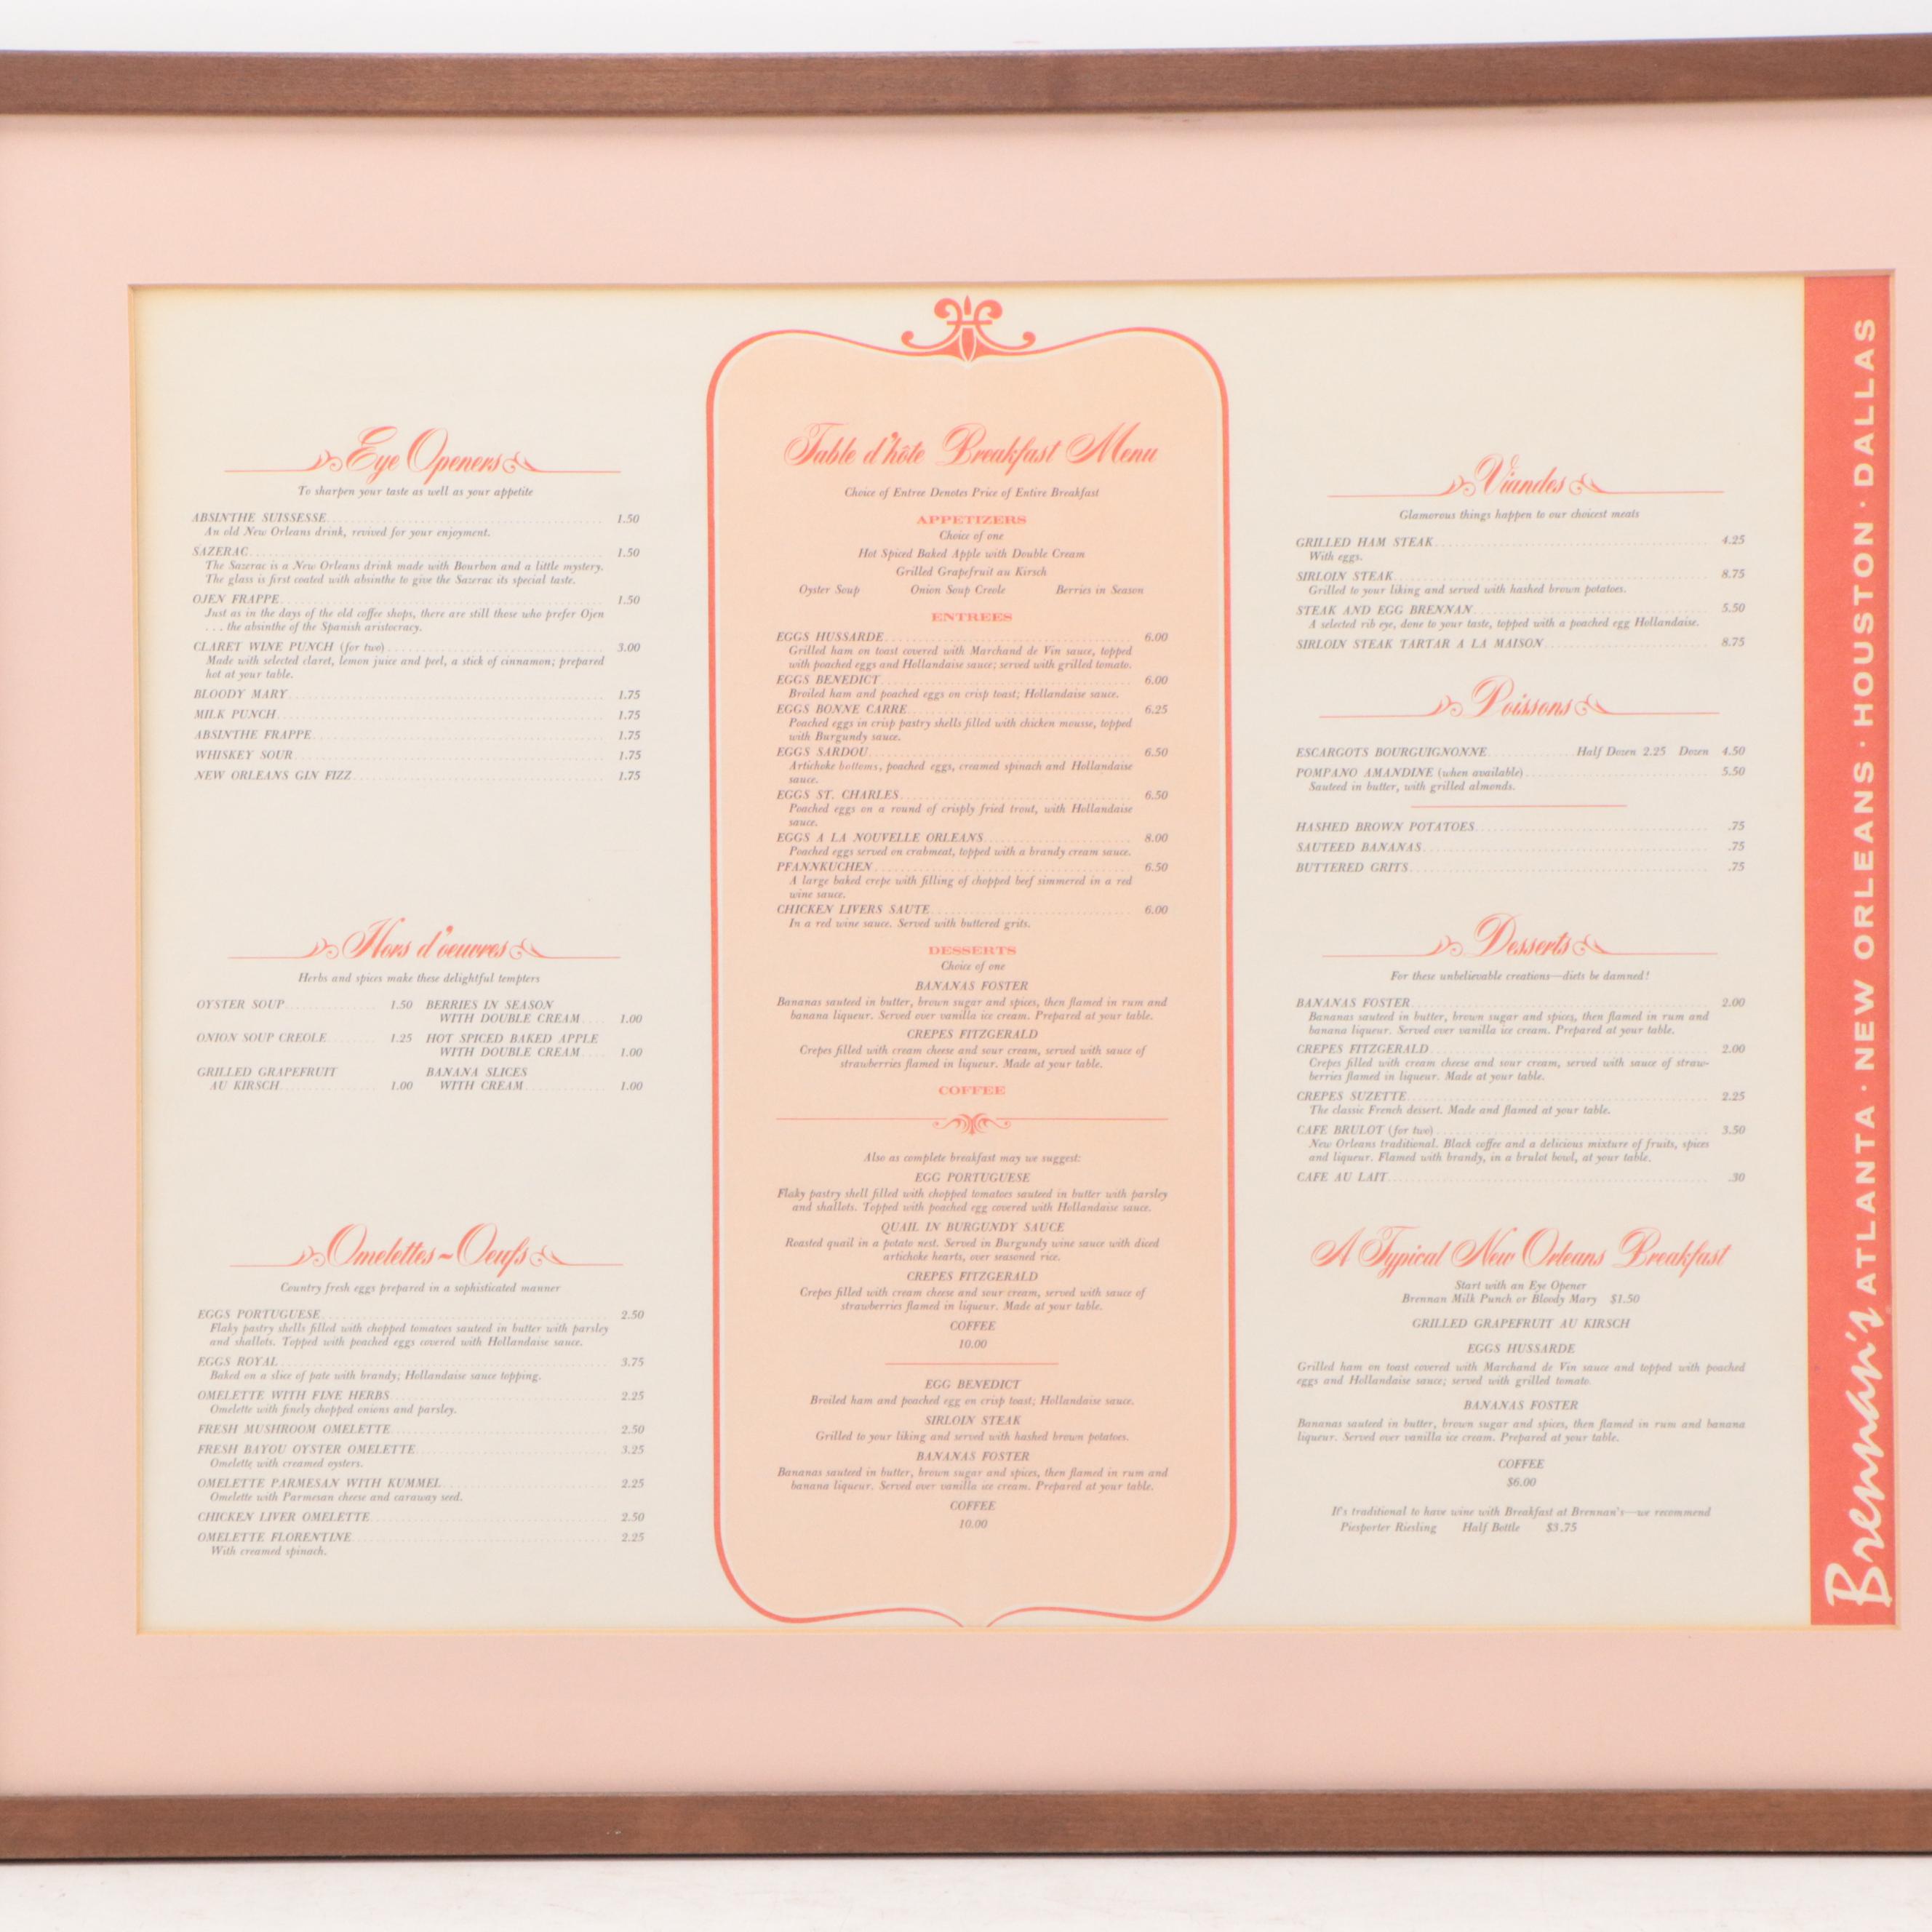 Eye Openers
To sharpen your taste as well as your appetite
ABSINTHE SUISSESSE 1.50
An old New Orleans drink, revived for your enjoyment.
SAZERAC 1.50
The Sazerac is a New Orleans drink made with Bourbon and a little mystery.
The glass is first coated with absinthe to give the Sazerac its special taste.
OJEN FRAPPE 1.50
Just as in the days of the old coffee shops, there are still those who prefer Ojen
. . . the absinthe of the Spanish aristocracy.
CLARET WINE PUNCH (for two) 3.00
Made with selected claret, lemon juice and peel, a stick of cinnamon; prepared
hot at your table.
BLOODY MARY 1.75
MILK PUNCH 1.75
ABSINTHE FRAPPE 1.75
WHISKEY SOUR 1.75
NEW ORLEANS GIN FIZZ 1.75
Hors d'oeuvres
Herbs and spices make these delightful tempters
OYSTER SOUP 1.50 BERRIES IN SEASON
WITH DOUBLE CREAM 1.00
ONION SOUP CREOLE 1.25 HOT SPICED BAKED APPLE
WITH DOUBLE CREAM 1.00
GRILLED GRAPEFRUIT BANANA SLICES
AU KIRSCH 1.00 WITH CREAM 1.00
Omelettes~Oeufs
Country fresh eggs prepared in a sophisticated manner
EGGS PORTUGUESE 2.50
Flaky pastry shells filled with chopped tomatoes sauteed in butter with parsley
and shallots. Topped with poached eggs covered with Hollandaise sauce.
EGGS ROYAL 3.75
Baked on a slice of pate with brandy; Hollandaise sauce topping.
OMELETTE WITH FINE HERBS 2.25
Omelette with finely chopped onions and parsley.
FRESH MUSHROOM OMELETTE 2.50
FRESH BAYOU OYSTER OMELETTE 3.25
Omelette with creamed oysters.
OMELETTE PARMESAN WITH KUMMEL 2.25
Omelette with Parmesan cheese and caraway seed.
CHICKEN LIVER OMELETTE 2.50
OMELETTE FLORENTINE 2.25
With creamed spinach.
Table d'hôte Breakfast Menu
Choice of Entree Denotes Price of Entire Breakfast
APPETIZERS
Choice of one
Hot Spiced Baked Apple with Double Cream
Grilled Grapefruit au Kirsch
Oyster Soup Onion Soup Creole Berries in Season
ENTREES
EGGS HUSSARDE 6.00
Grilled ham on toast covered with Marchand de Vin sauce, topped
with poached eggs and Hollandaise sauce; served with grilled tomato.
EGGS BENEDICT 6.00
Broiled ham and poached eggs on crisp toast; Hollandaise sauce.
EGGS BONNE CARRE 6.25
Poached eggs in crisp pastry shells filled with chicken mousse, topped
with Burgundy sauce.
EGGS SARDOU 6.50
Artichoke bottoms, poached eggs, creamed spinach and Hollandaise
sauce.
EGGS ST. CHARLES 6.50
Poached eggs on a round of crisply fried trout, with Hollandaise
sauce.
EGGS A LA NOUVELLE ORLEANS 8.00
Poached eggs served on crabmeat, topped with a brandy cream sauce.
PFANNKUCHEN 6.50
A large baked crepe with filling of chopped beef simmered in a red
wine sauce.
CHICKEN LIVERS SAUTE 6.00
In a red wine sauce. Served with buttered grits.
DESSERTS
Choice of one
BANANAS FOSTER
Bananas sauteed in butter, brown sugar and spices, then flamed in rum and
banana liqueur. Served over vanilla ice cream. Prepared at your table.
CREPES FITZGERALD
Crepes filled with cream cheese and sour cream, served with sauce of
strawberries flamed in liqueur. Made at your table.
COFFEE
Also as complete breakfast may we suggest:
EGG PORTUGUESE
Flaky pastry shell filled with chopped tomatoes sauteed in butter with parsley
and shallots. Topped with poached egg covered with Hollandaise sauce.
QUAIL IN BURGUNDY SAUCE
Roasted quail in a potato nest. Served in Burgundy wine sauce with diced
artichoke hearts, over seasoned rice.
CREPES FITZGERALD
Crepes filled with cream cheese and sour cream, served with sauce of
strawberries flamed in liqueur. Made at your table.
COFFEE
10.00
EGG BENEDICT
Broiled ham and poached egg on crisp toast; Hollandaise sauce.
SIRLOIN STEAK
Grilled to your liking and served with hashed brown potatoes.
BANANAS FOSTER
Bananas sauteed in butter, brown sugar and spices, then flamed in rum and
banana liqueur. Served over vanilla ice cream. Prepared at your table.
COFFEE
10.00
Viandes
Glamorous things happen to our choicest meats
GRILLED HAM STEAK 4.25
With eggs.
SIRLOIN STEAK 8.75
Grilled to your liking and served with hashed brown potatoes.
STEAK AND EGG BRENNAN 5.50
A selected rib eye, done to your taste, topped with a poached egg Hollandaise.
SIRLOIN STEAK TARTAR A LA MAISON 8.75
Poissons
ESCARGOTS BOURGUIGNONNE Half Dozen 2.25 Dozen 4.50
POMPANO AMANDINE (when available) 5.50
Sauteed in butter, with grilled almonds.
HASHED BROWN POTATOES .75
SAUTEED BANANAS .75
BUTTERED GRITS .75
Desserts
For these unbelievable creations—diets be damned!
BANANAS FOSTER 2.00
Bananas sauteed in butter, brown sugar and spices, then flamed in rum and
banana liqueur. Served over vanilla ice cream. Prepared at your table.
CREPES FITZGERALD 2.00
Crepes filled with cream cheese and sour cream, served with sauce of straw-
berries flamed in liqueur. Made at your table.
CREPES SUZETTE 2.25
The classic French dessert. Made and flamed at your table.
CAFE BRULOT (for two) 3.50
New Orleans traditional. Black coffee and a delicious mixture of fruits, spices
and liqueur. Flamed with brandy, in a brulot bowl, at your table.
CAFE AU LAIT .30
A Typical New Orleans Breakfast
Start with an Eye Opener
Brennan Milk Punch or Bloody Mary $1.50
GRILLED GRAPEFRUIT AU KIRSCH
EGGS HUSSARDE
Grilled ham on toast covered with Marchand de Vin sauce and topped with poached
eggs and Hollandaise sauce; served with grilled tomato.
BANANAS FOSTER
Bananas sauteed in butter, brown sugar and spices, then flamed in rum and banana
liqueur. Served over vanilla ice cream. Prepared at your table.
COFFEE
$6.00
It's traditional to have wine with Breakfast at Brennan's—we recommend
Piesporter Riesling Half Bottle $3.75
Brennan's ATLANTA · NEW ORLEANS · HOUSTON · DALLAS